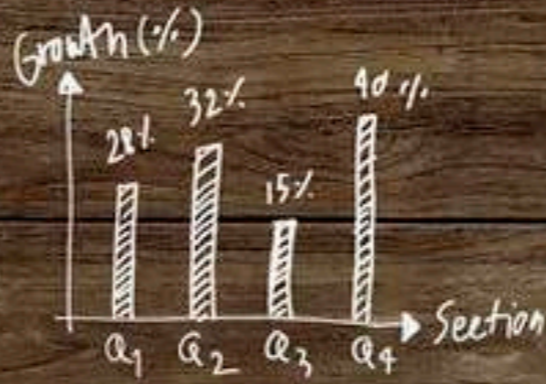 Growth (%)
28%
32%
15%
40%
Q1 Q2 Q3 Q4
Section